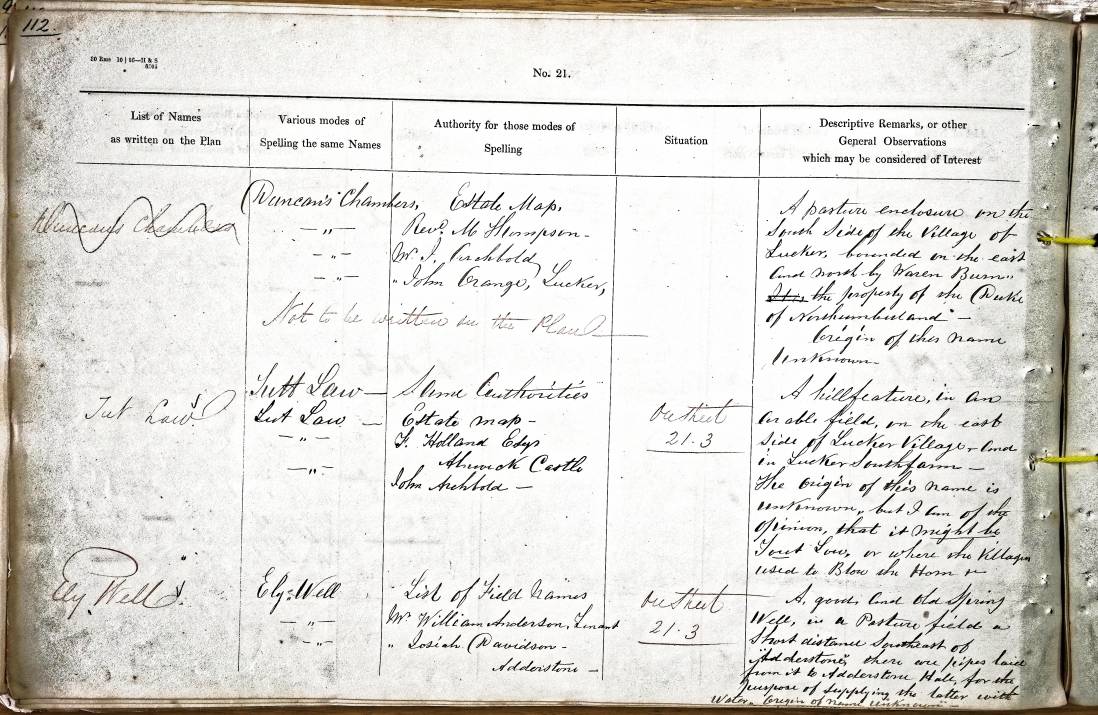 112.
No. 21.
List of Names
as written on the Plan
Various modes of
Spelling the same Names
Authority for those modes of
Spelling
Situation
Descriptive Remarks, or other
General Observations
which may be considered of Interest
Duncan's Chambers
Duncan's Chambers,
— „ —
— „ —
— „ —
Estate Map.
Revd. M Thompson —
Mr. J. Archbold
„ John Orange, Lucker,
Not to be written on the Plan
A pasture enclosure on the
South Side of the Village of
Lucker, bounded on the east
and north by Waren Burn,
It is the property of the Duke
of Northumberland —
Origin of this name
Unknown —
Tut Law
Tutt Law —
Tut Law —
— „ —
— „ —
Same Authorities
Estate map —
F. Holland Esqr
Alnwick Castle
John Archbold —
On Sheet
21.3
A hill feature, in an
arable field, on the east
side of Lucker Village, and
in Lucker South farm —
The Origin of this name is
unknown, but I am of the
opinion, that it might be
Tout Law, or where the Villages
used to Blow the Horn
Ely Well
Ely Well
— „ —
— „ —
List of Field Names
Mr William Anderson, Tenant
„ Josiah Davidson —
Adderstone —
On Sheet
21.3
A good and old Spring
Well, in a Pasture field a
Short distance Southeast of
Adderstone, there are pipes laid
from it to Adderstone Hall, for the
purpose of supplying the latter with
Water. Origin of name Unknown —